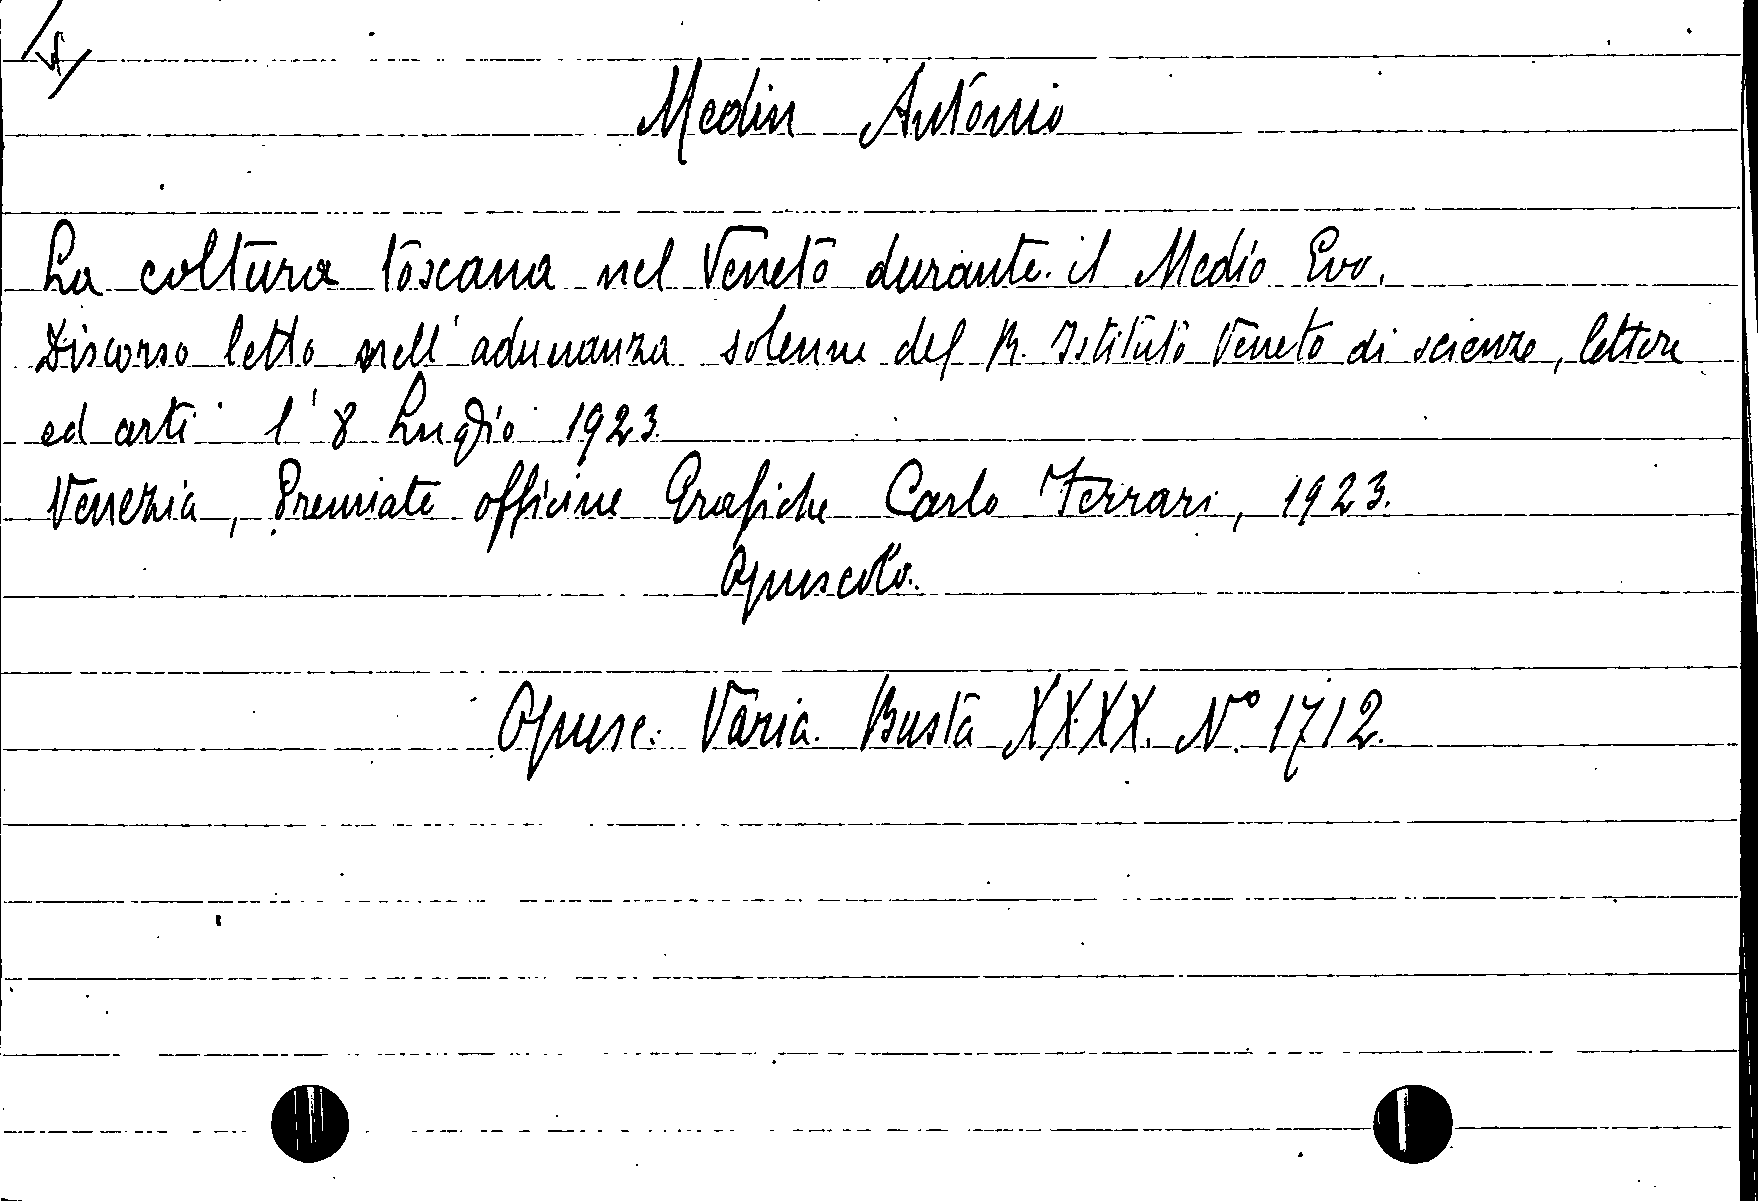 Medin Antonio
La coltura toscana nel Veneto durante il Medio Evo.
Discorso letto nell'adunanza solenne del R. Istituto Veneto di scienze, lettere
ed arti l'8 Luglio 1923
Venezia, Premiate officine Grafiche Carlo Ferrari, 1923.
Opuscolo.
Opusc. Varia. Busta XXXX. N° 1712.